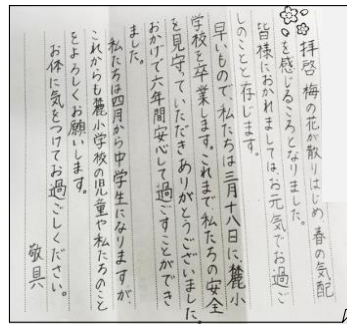 拝啓 梅の花が散りはじめ、春の気配
を感じるころとなりました。
皆様におかれましては、お元気でお過ご
しのことと存じます。
早いもので私たちは三月十八日に、麓小
学校を卒業します。これまで私たちの安全
を見守っていただきありがとうございました。
おかげで六年間安心して過ごすことができ
ました。
私たちは四月から中学生になりますが
これからも麓小学校の児童や私たちのこと
をよろしくお願いします。
お体に気をつけてお過ごしください。
敬具